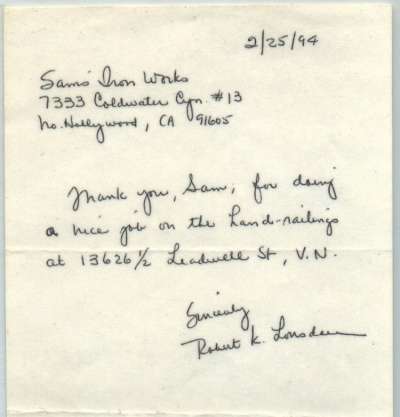 2/25/94
Sams' Iron Works
7333 Coldwater Cyn. #13
No. Hollywood, CA 91605
Thank you, Sam, for doing
a nice job on the hand-railings
at 13626 1/2 Leadwell St, V.N.
Sincerely
Robert K.